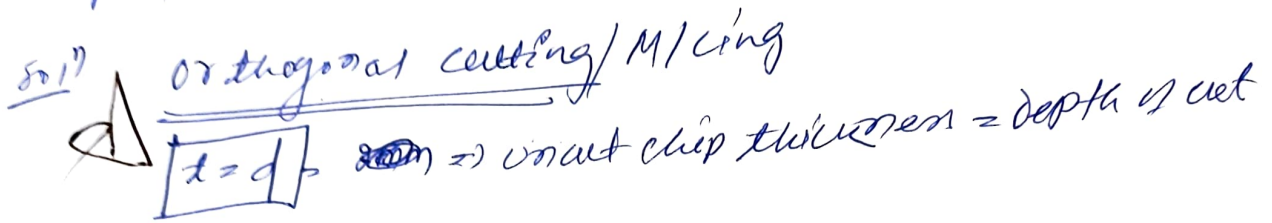 Solⁿ) Orthogonal cutting/M/cing
d t = d => uncut chip thickness = depth of cut